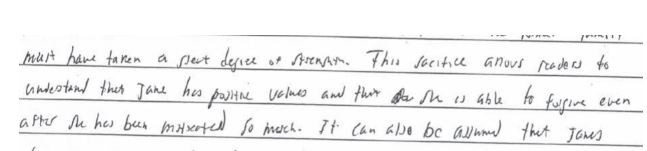 must have taken a great degree of strength. This sacrifice allows readers to
understand that Jane has positive values and that she is able to forgive even
after she has been mistreated so much. It can also be assumed that Janes